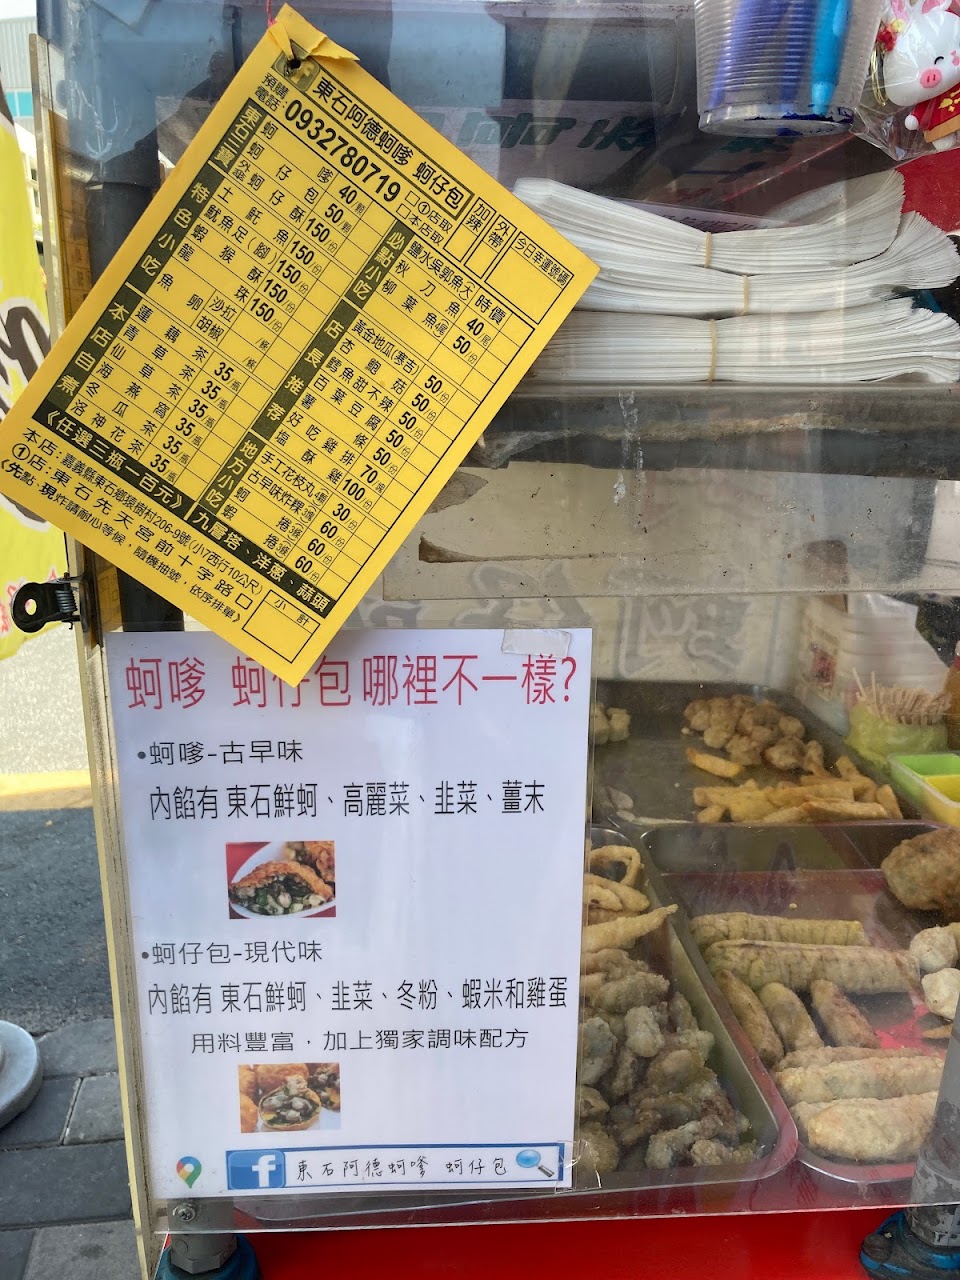 東石阿德蚵嗲 蚵仔包
預購
電話:0932780719
□①店取
□本店取
加辣
外帶
今日幸運號碼
東石三寶
蚵嗲 40/顆
蚵仔包 50/顆
蚵仔酥 150/份
特色小吃
土魠魚 150/份
魷魚足(腳) 150/份
蝦猴酥 150/份
龍珠 150/份
魚卵 沙拉 /條
胡椒 /條
本店自煮
蓮藕茶 35/瓶
青草茶 35/瓶
仙草茶 35/瓶
海燕窩 35/瓶
冬瓜茶 35/瓶
洛神花茶 35/瓶
《任選三瓶一百元》
必點小吃
鹽水吳郭魚(大) 時價
秋刀魚 40/尾
柳葉魚4尾 50/份
店長推荐
黃金地瓜(薯吉) 50/份
杏鮑菇 50/份
鱈魚甜不辣 50/份
百葉豆腐 50/份
薯條 50/份
好吃雞排 70/片
塩酥雞 100/份
地方小吃
手工花枝丸4顆 30/份
古早味炸粿3塊 60/份
蚵捲3條 60/份
蝦捲3條 60/份
九層塔、洋蔥、蒜頭
本店:嘉義縣東石鄉猿樹村206-9號(小7西行10公尺)
①店:東石先天宮前十字路口
《先點現炸請耐心等候,隨機抽號,依序排單》
小計
蚵嗲 蚵仔包 哪裡不一樣?
•蚵嗲-古早味
內餡有 東石鮮蚵、高麗菜、韭菜、薑末
•蚵仔包-現代味
內餡有 東石鮮蚵、韭菜、冬粉、蝦米和雞蛋
用料豐富,加上獨家調味配方
f 東石阿德蚵嗲 蚵仔包